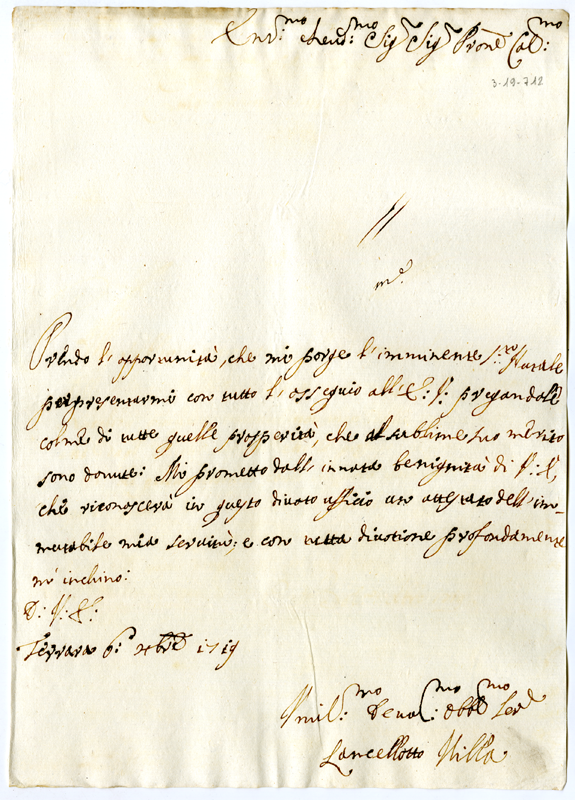 Em.mo e Reu.mo Sig.r Sig.r Prone Col.mo
3-19-712
Prendo l'opportunità, che mi porge l'imminente S.to Natale
per presentarmi con tutto l'osseguio all'E: V: pregandole
colme di tutte quelle prosperità, che al sublime suo merito
sono douute: Mi prometto dall'innata benignità di V: E,
che riconoscerà in questo diuoto ufficio un attestato dell'im-
mutabile mia seruitù; e con tutta diuotione profondamente
m'inchino:
D: V: E:
Ferrara 6: xbre 1719
Vmil.mo Deuot.mo Obb.mo Ser.
Lancellotto Villa